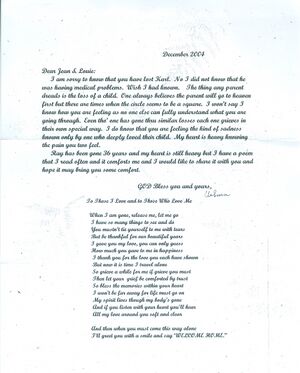 December 2004
Dear Jean & Louie:
I am sorry to know that you have lost Karl. No I did not know that he
was having medical problems. Wish I had known. The thing any parent
dreads is the loss of a child. One always believes the parent will go to heaven
first but there are times when the circle seems to be a square. I won't say I
know how you are feeling as no one else can fully understand what you are
going through. Even tho' one has gone thru similar losses each one grieves in
their own special way. I do know that you are feeling the kind of sadness
known only by one who deeply loved their child. My heart is heavy knowing
the pain you two feel.
Ray has been gone 36 years and my heart is still heavy but I have a poem
that I read often and it comforts me and I would like to share it with you and
hope it may bring you some comfort.
GOD Bless you and yours,
To Those I Love and to Those Who Love Me
When I am gone, release me, let me go
I have so many things to see and do
You mustn't tie yourself to me with tears
But be thankful for our beautiful years
I gave you my love, you can only guess
How much you gave to me in happiness
I thank you for the love you each have shown
But now it is time I travel alone
So grieve a while for me if grieve you must
Then let your grief be comforted by trust
So bless the memories within your heart
I won't be far away for life must go on
My spirit lives though my body's gone
And if you listen with your heart you'll hear
All my love around you soft and clear
And then when you must come this way alone
I'll greet you with a smile and say "WELCOME HOME."